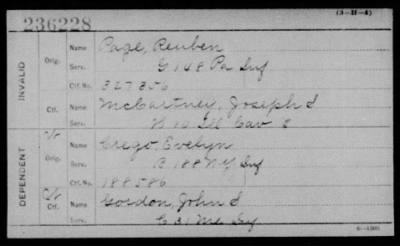 236228
(3-H-4)
INVALID
Orig.
Name
Page, Reuben
Serv.
G 148 Pa Inf
Ctf. No.
327356
Ctf.
Name
McCartney, Joseph S
Serv.
H 10 Ill Cav &
DEPENDENT
Orig.
Name
Crego, Evelyn
Serv.
B 188 N.Y. Inf
Ctf. No.
188586
Ctf.
Name
Gordon, John S
Serv.
C 31 Me Inf